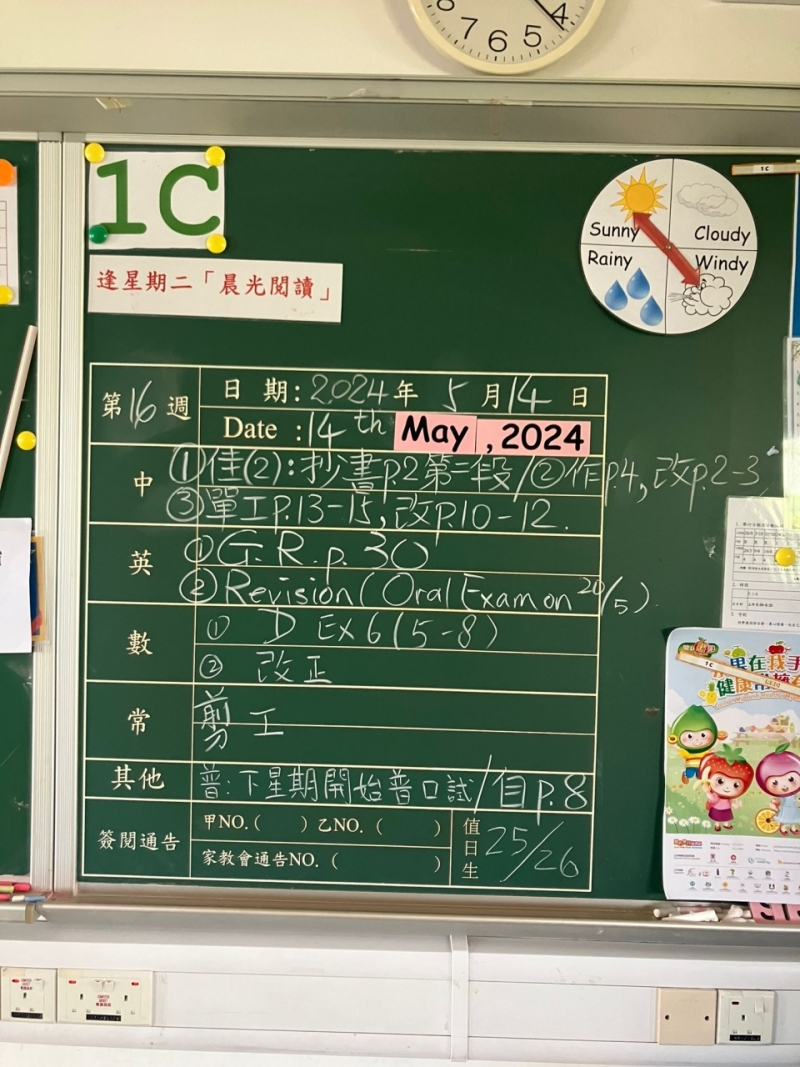 8 7 6 5 4
1C
逢星期二「晨光閱讀」
Sunny Cloudy
Rainy Windy
第16週 日期:2024年5月14日
Date :14th May , 2024
中 ①佳(2):抄書p.2第二段/②作p.4,改p.2-3
③單工P.13-15,改p.10-12.
英 ①G.R. p. 30
②Revision (Oral Exam on 20/5).
數 ① D EX 6 (5-8)
② 改正
常 剪工
其他 普:下星期開始普口試/自p.8
簽閱通告 甲NO.( ) 乙NO. ( )
家教會通告NO. ( )
值日生 25/26
1C